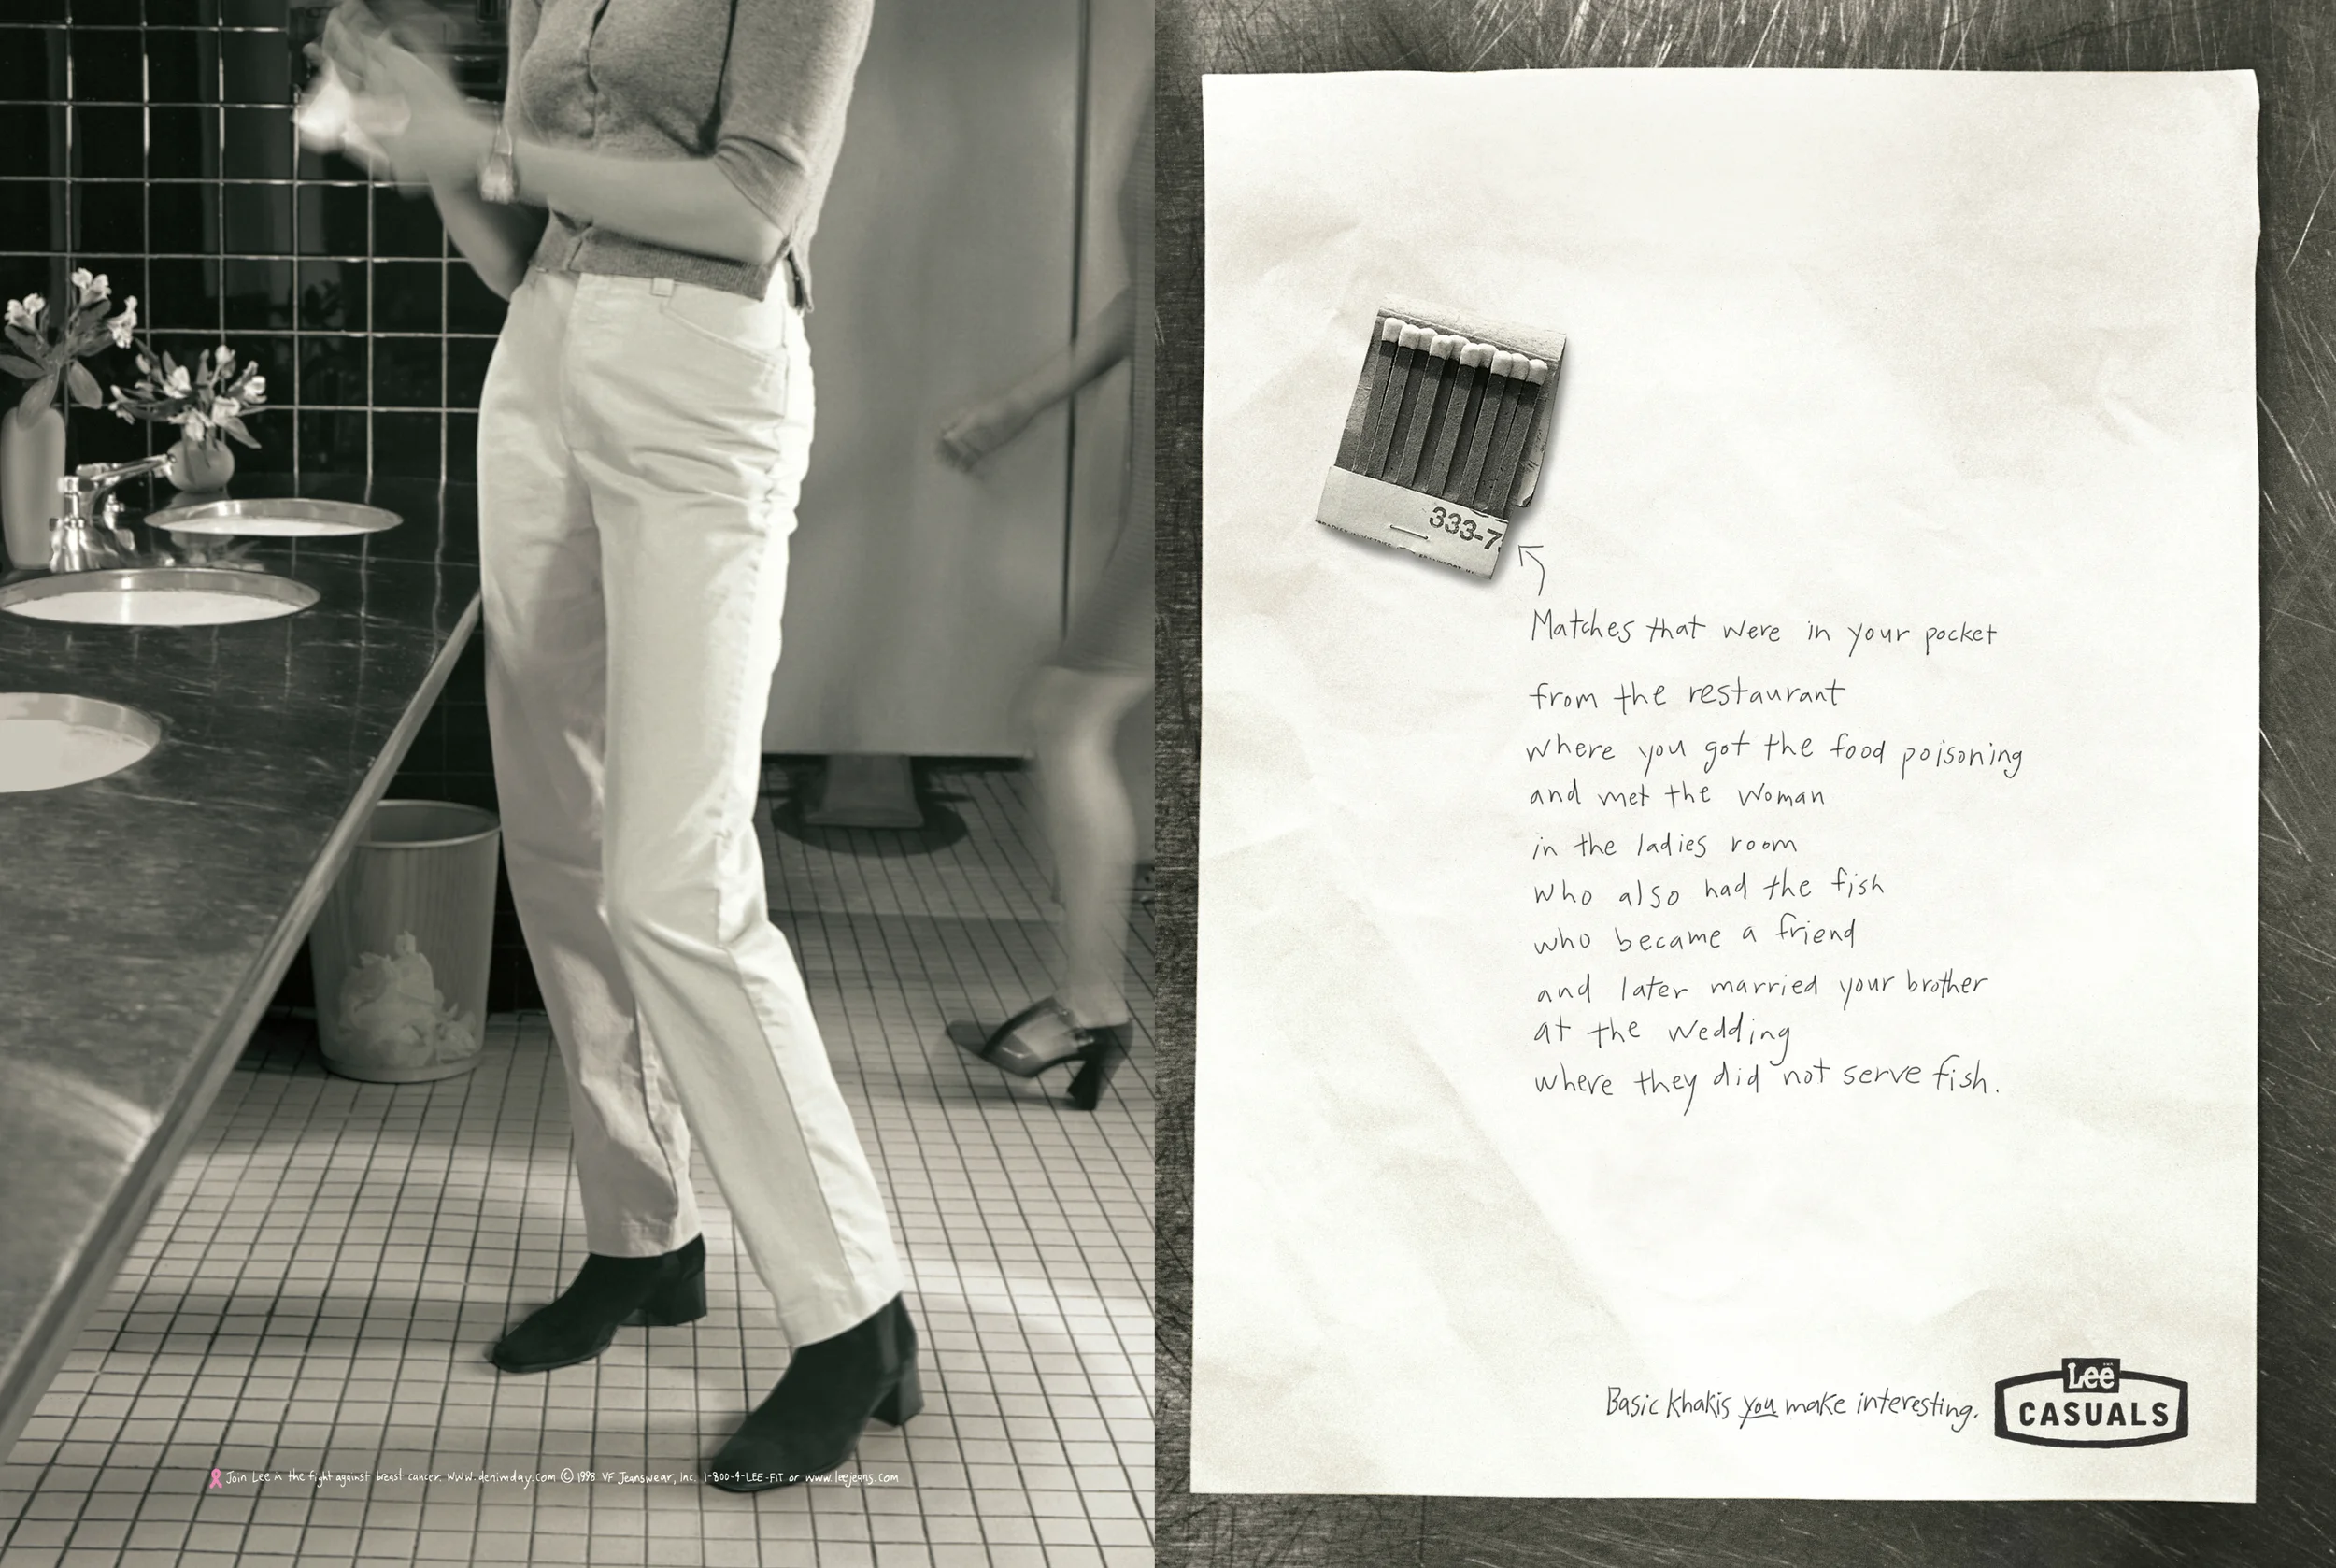 Join Lee in the fight against breast cancer. www.denimday.com © 1998 VF Jeanswear, Inc. 1-800-4-LEE-FIT or www.leejeans.com
333-7
Matches that were in your pocket
from the restaurant
where you got the food poisoning
and met the woman
in the ladies room
who also had the fish
who became a friend
and later married your brother
at the wedding
where they did not serve fish.
Basic khakis you make interesting.
Lee
CASUALS